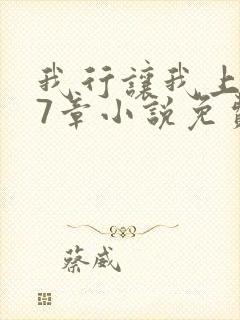 我行讓我上
7章小説免費
蔡威